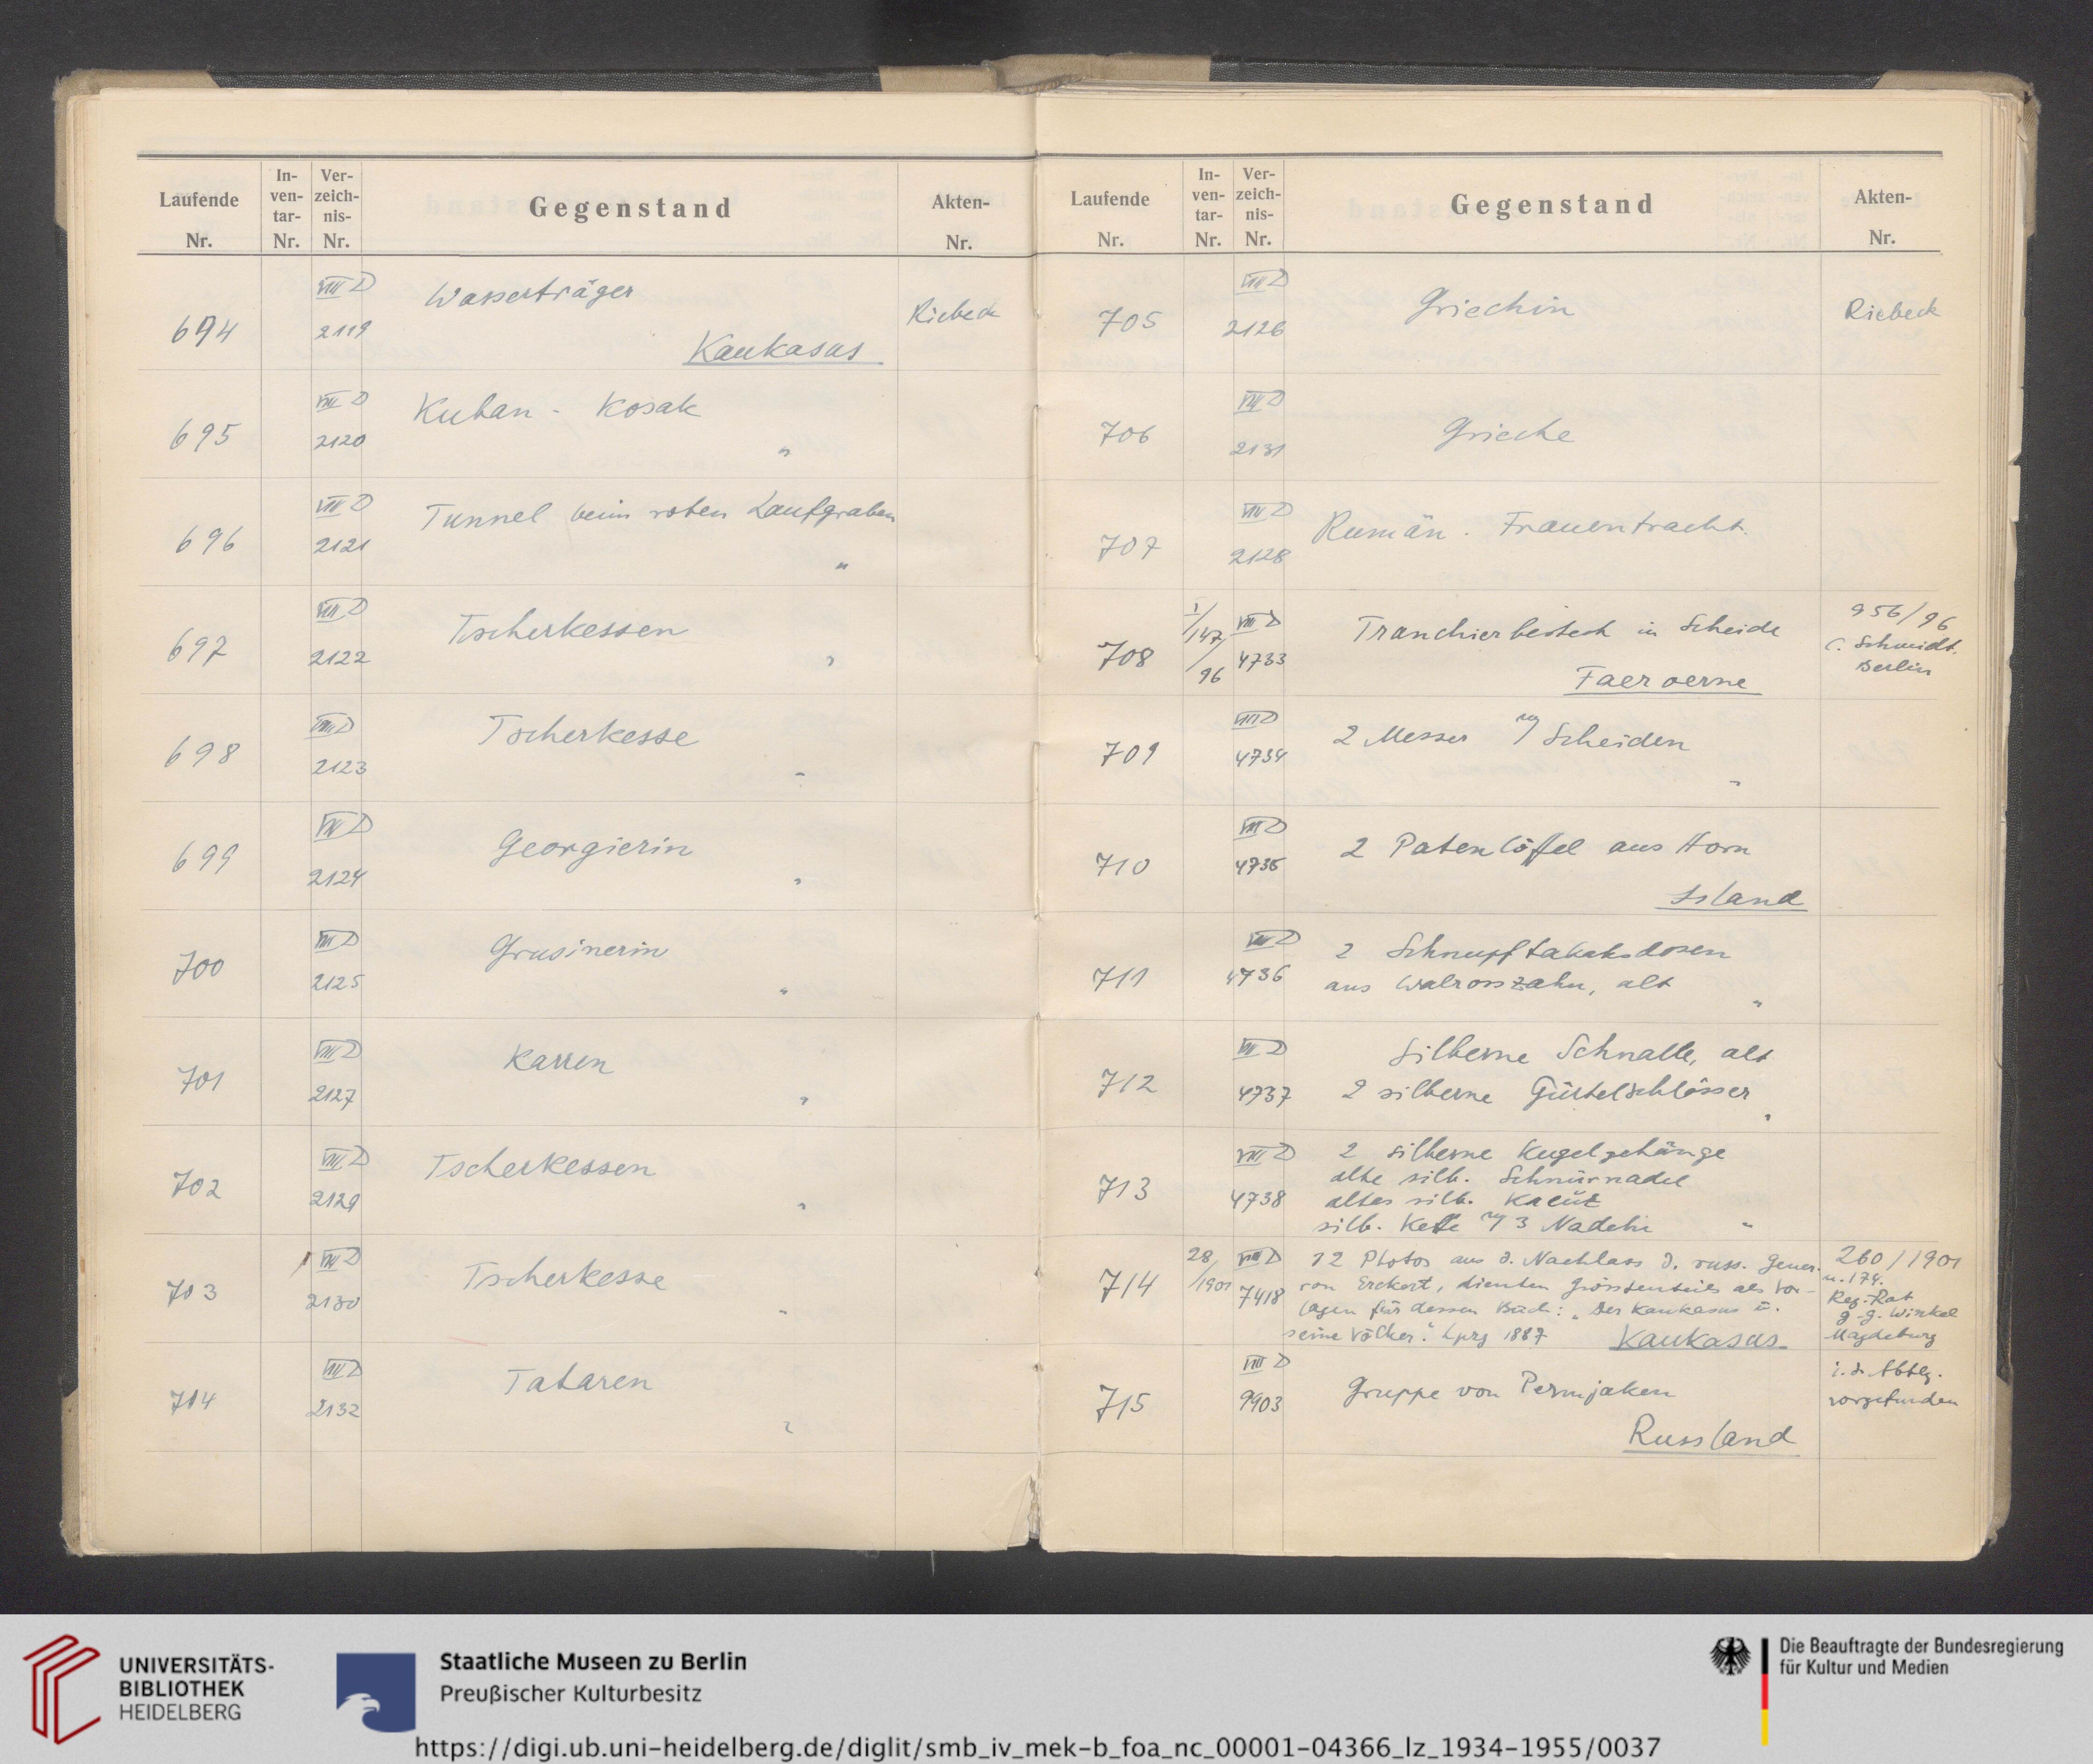 Laufende Nr. In-ven-tar-Nr. Ver-zeich-nis-Nr. Gegenstand Akten-Nr.
694 VIII D 2119 Wasserträger Riebeck
Kaukasus
695 VIII D 2120 Kuban - Kosak
"
696 VIII D 2121 Tunnel beim roten Laufgraben
"
697 VIII D 2122 Tscherkessen "
698 VIII D 2123 Tscherkesse "
699 VIII D 2124 Georgierin "
700 VIII D 2125 Grusinerin "
701 VIII D 2127 Karren "
702 VIII D 2129 Tscherkessen "
703 VIII D 2130 Tscherkesse "
714 VIII D 2132 Tataren "
Laufende Nr. In-ven-tar-Nr. Ver-zeich-nis-Nr. Gegenstand Akten-Nr.
705 VIII D 2126 Griechin Riebeck
706 VIII D 2131 Grieche
707 VIII D 2128 Rumän. Frauentracht.
708 I/147/96 VIII D 4733 Tranchierbesteck in Scheide 956/96
C. Schmidt.
Faeroerne Berlin
709 VIII D 4734 2 Messer m/ Scheiden
"
710 VIII D 4735 2 Patenlöffel aus Horn
Island
711 VIII D 4736 2 Schnupftabaksdosen
aus Walrosszahn, alt "
712 VIII D 4737 Silberne Schnalle, alt
2 silberne Gürtelschlösser "
713 VIII D 4738 2 silberne Kugelgehänge
alte silb. Schnürnadel
altes silb. Kreuz
silb. Kette m/ 3 Nadeln "
714 28/1901 VIII D 7418 12 Photos aus d. Nachlass d. russ. Gener. 260/1901
von Erckert, dienten grösstenteils als Vor- u. 174.
lagen für dessen Buch: "Der Kaukasus u. Reg.-Rat
seine Völker". Lpzg 1887 Kaukasus G.-G. Winkel
Magdeburg
715 VIII D 9903 Gruppe von Permjaken i. d. Abtlg.
vorgefunden
Russland
UNIVERSITÄTS-
BIBLIOTHEK
HEIDELBERG
Staatliche Museen zu Berlin
Preußischer Kulturbesitz
Die Beauftragte der Bundesregierung
für Kultur und Medien
https://digi.ub.uni-heidelberg.de/diglit/smb_iv_mek-b_foa_nc_00001-04366_lz_1934-1955/0037